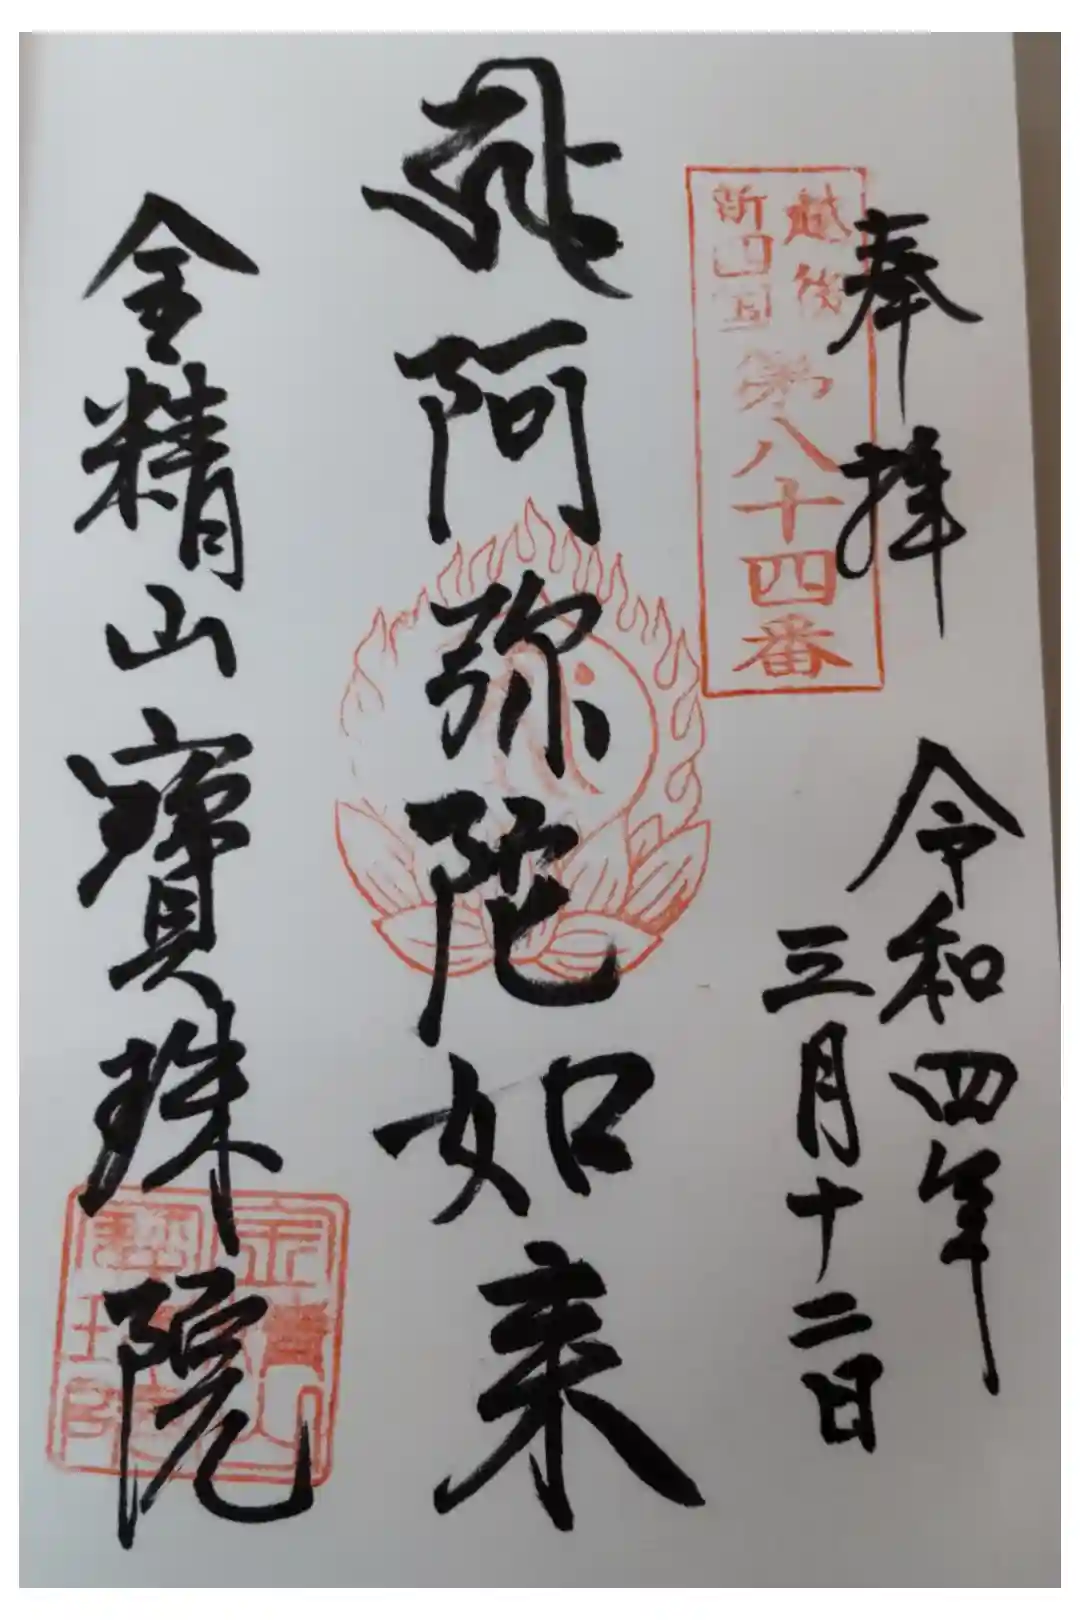 奉拝
越後
新四国
第八十四番
令和四年
三月十二日
阿弥陀如来
金精山寶珠院
金精山
寶珠院